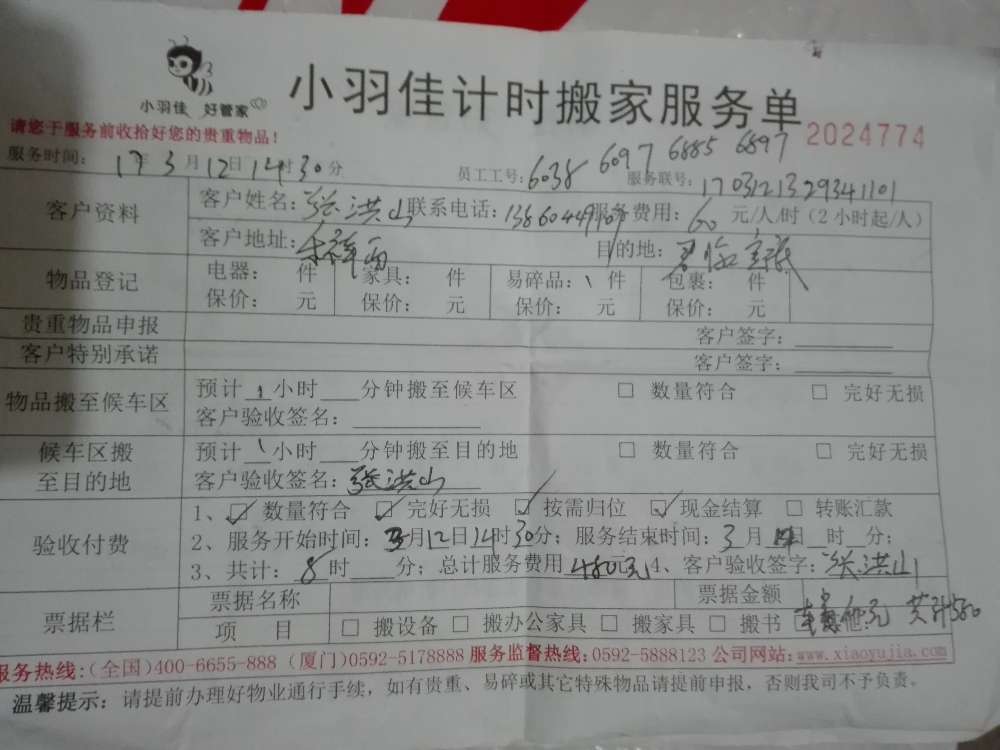 小羽佳 好管家
小羽佳计时搬家服务单
2024774
请您于服务前收拾好您的贵重物品!
服务时间: 17年3月12日14时30分 员工工号: 6038 6097 6885 6897 服务联号: 1703121329341101
客户资料 客户姓名: 张洪山 联系电话: 服务费用: 60 元/人/时(2小时起/人)
客户地址: 目的地:
物品登记 电器: 件 家具: 件 易碎品: 1件 包裹: 件
保价: 元 保价: 元 保价: 元 保价: 元
贵重物品申报 客户签字:
客户特别承诺 客户签字:
物品搬至候车区 预计1小时 分钟搬至候车区 □ 数量符合 □ 完好无损
客户验收签名:
候车区搬至目的地 预计1小时 分钟搬至目的地 □ 数量符合 □ 完好无损
客户验收签名: 张洪山
验收付费 1、☑ 数量符合 ☑ 完好无损 ☑ 按需归位 ☑ 现金结算 □ 转账汇款
2、服务开始时间: 3月12日14时30分; 服务结束时间: 3月 日 时 分;
3、共计: 8时 分; 总计服务费用 480元 4、客户验收签字: 张洪山
票据栏 票据名称 票据金额
项 目 □ 搬设备 □ 搬办公家具 □ 搬家具 □ 搬书 元 共计580
服务热线:(全国)400-6655-888 (厦门)0592-5178888 服务监督热线:0592-5888123 公司网站:www.xiaoyujia.com
温馨提示: 请提前办理好物业通行手续, 如有贵重、易碎或其它特殊物品请提前申报, 否则我司不予负责。